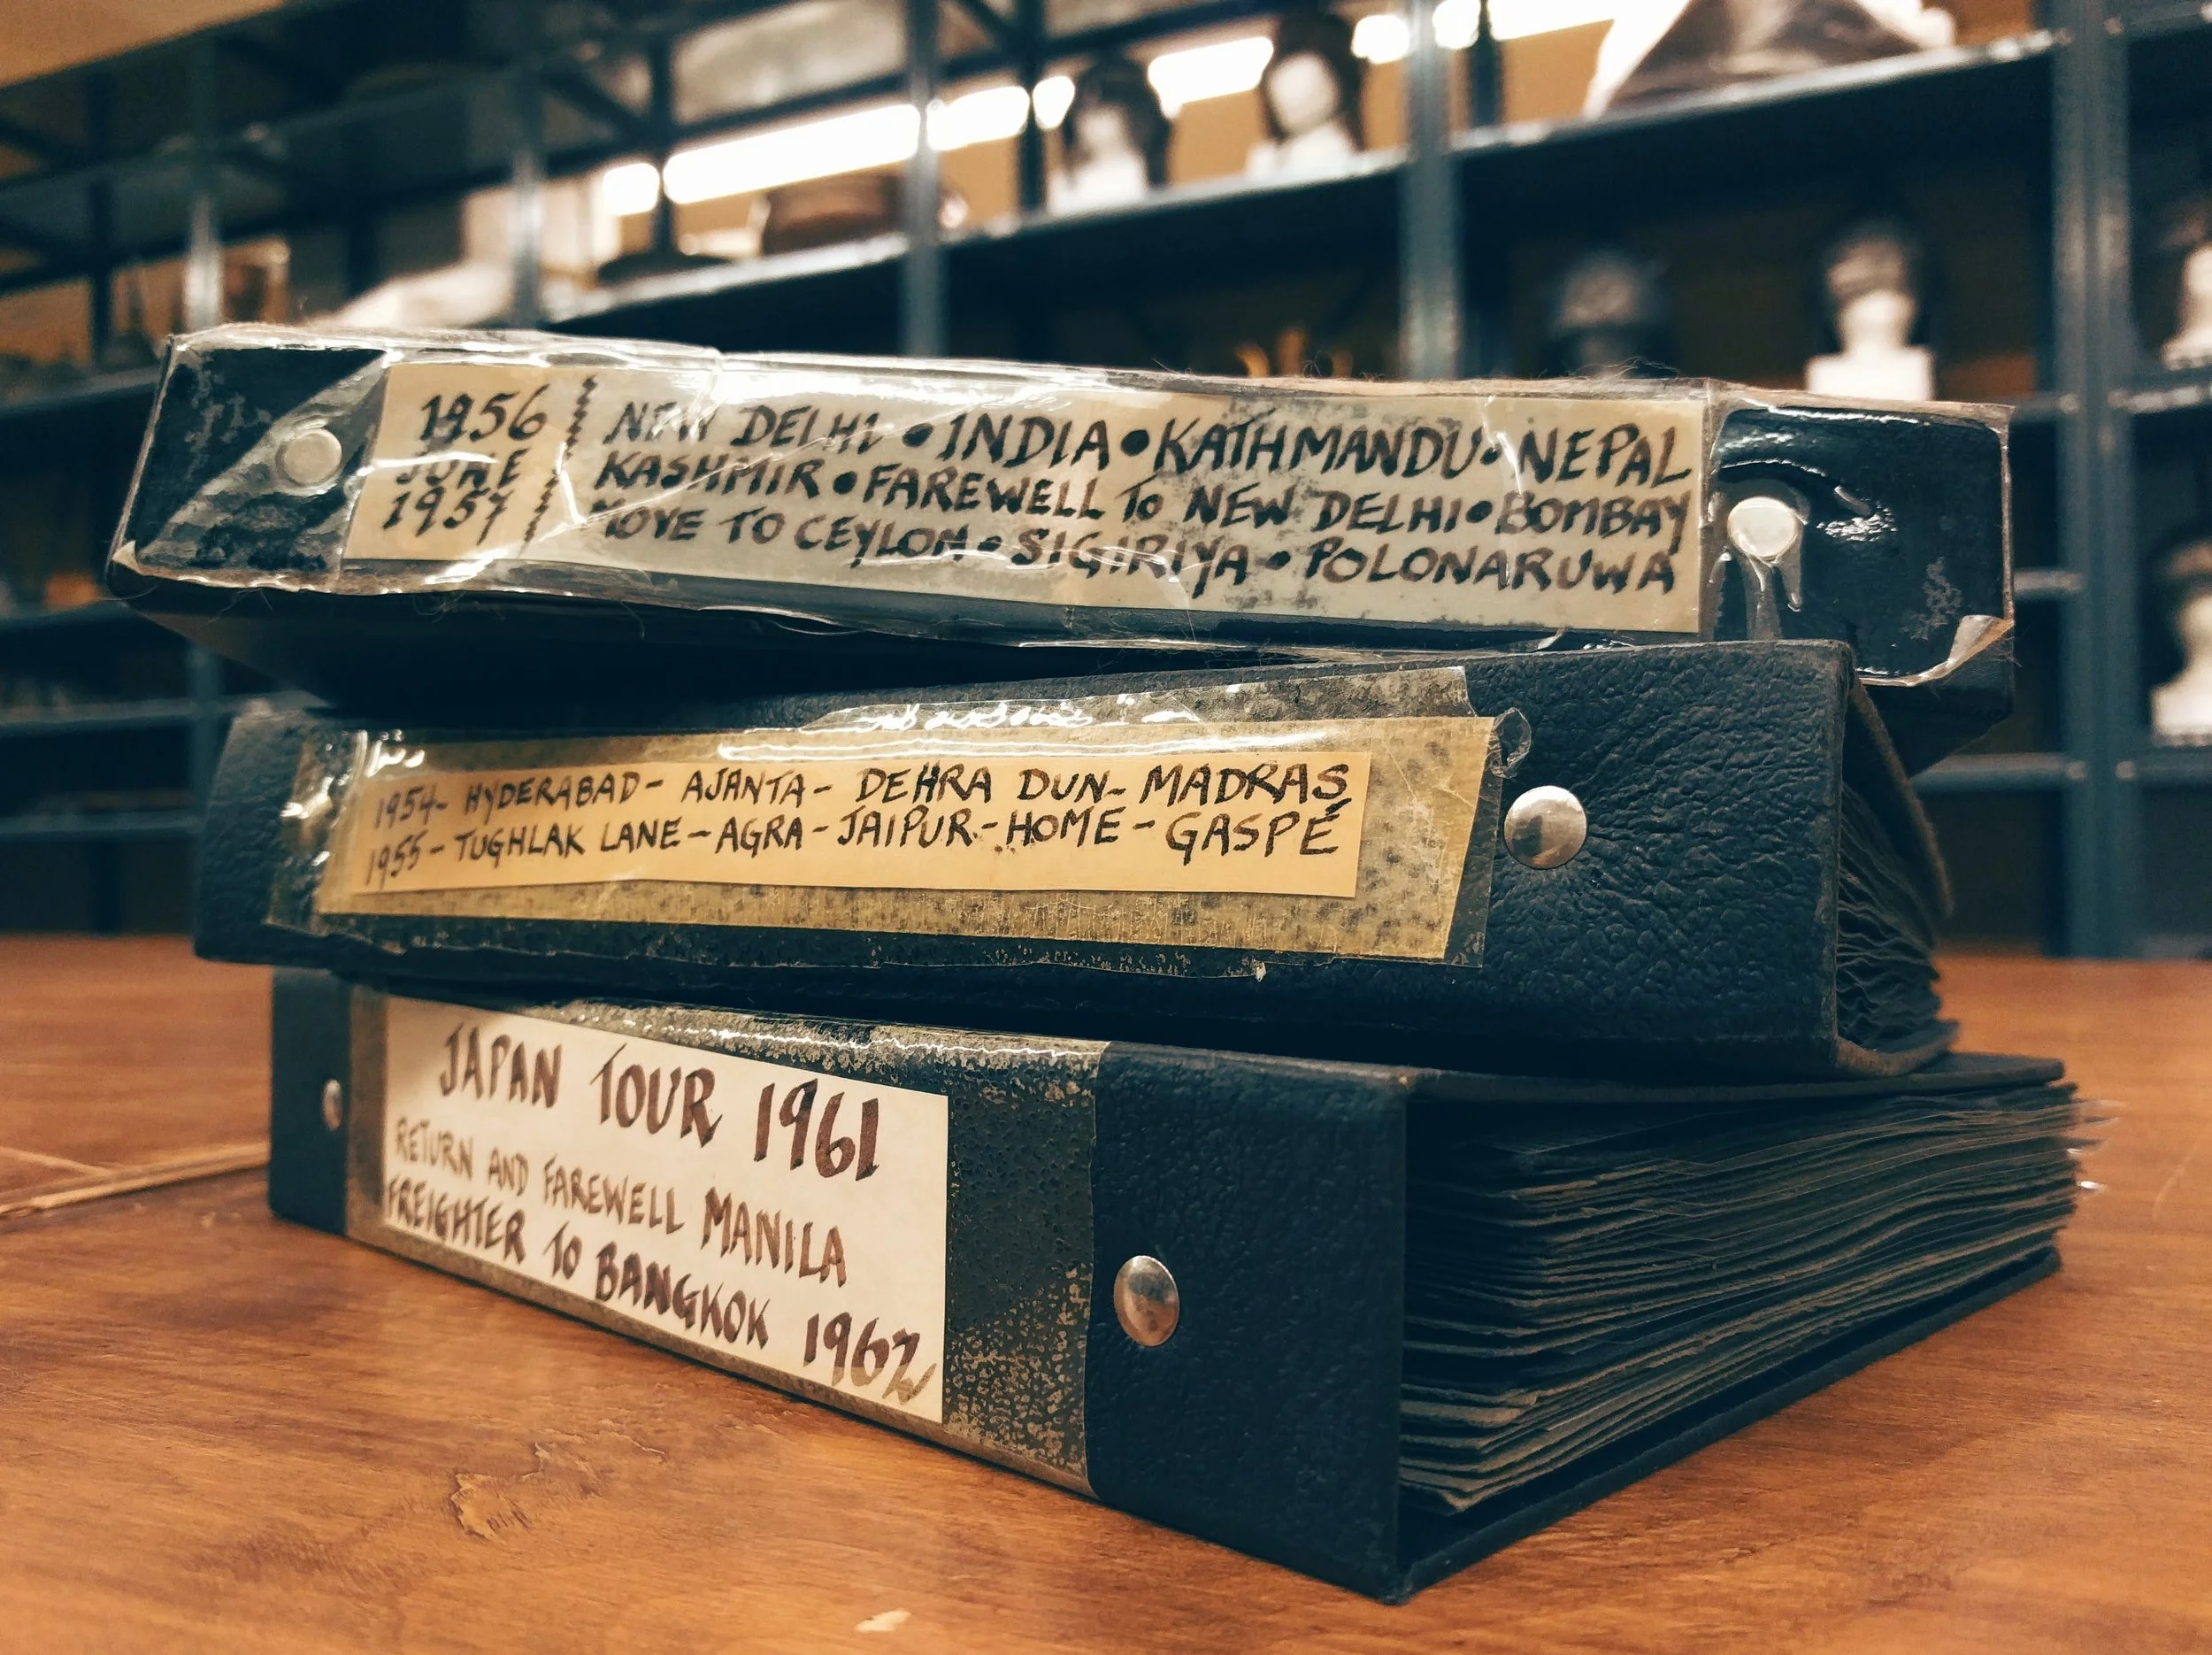 1956
JUNE
1957
NEW DELHI • INDIA • KATHMANDU • NEPAL
KASHMIR • FAREWELL To NEW DELHI • BOMBAY
MOVE TO CEYLON • SIGIRIYA • POLONARUWA
1954- HYDERABAD- AJANTA- DEHRA DUN- MADRAS
1955- TUGHLAK LANE- AGRA- JAIPUR- HOME- GASPÉ
JAPAN TOUR 1961
RETURN AND FAREWELL MANILA
FREIGHTER TO BANGKOK 1962